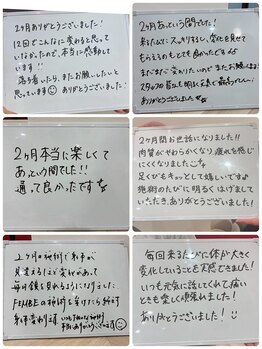 2ヶ月ありがとうございました!
12回でこんなに変わると思って
いなかったので、本当に感動して
います!!
落ち着いたら、またお願いしたいと
思っています☺ ありがとうございました!
2ヶ月あっという間でした!
来るたびに スッキリするし、変化を見せて
もらえるのもとても良かったです
まだまだ変わりたいので またお願いします
ありがとうございました
2ヶ月本当に楽しくて
あっという間でした!!
通って良かったです
2ヶ月間お世話になりました!!
肉質がやわらかくなり疲れを感じ
にくくなりました
足くびもキュッとして嬉しいです
施術のたびに明るくはげまして
いただき、ありがとうございました!
2ヶ月の施術で身体が
見違えるほど変化があって
毎日鏡を見れるようになりました
の施術を受けたら絶対
変わります
毎回来るたびに体が大きく
変化していることを実感できました!
いつも元気に話してくれて痛い
ときも楽しく頑張れました!
ありがとうございました!